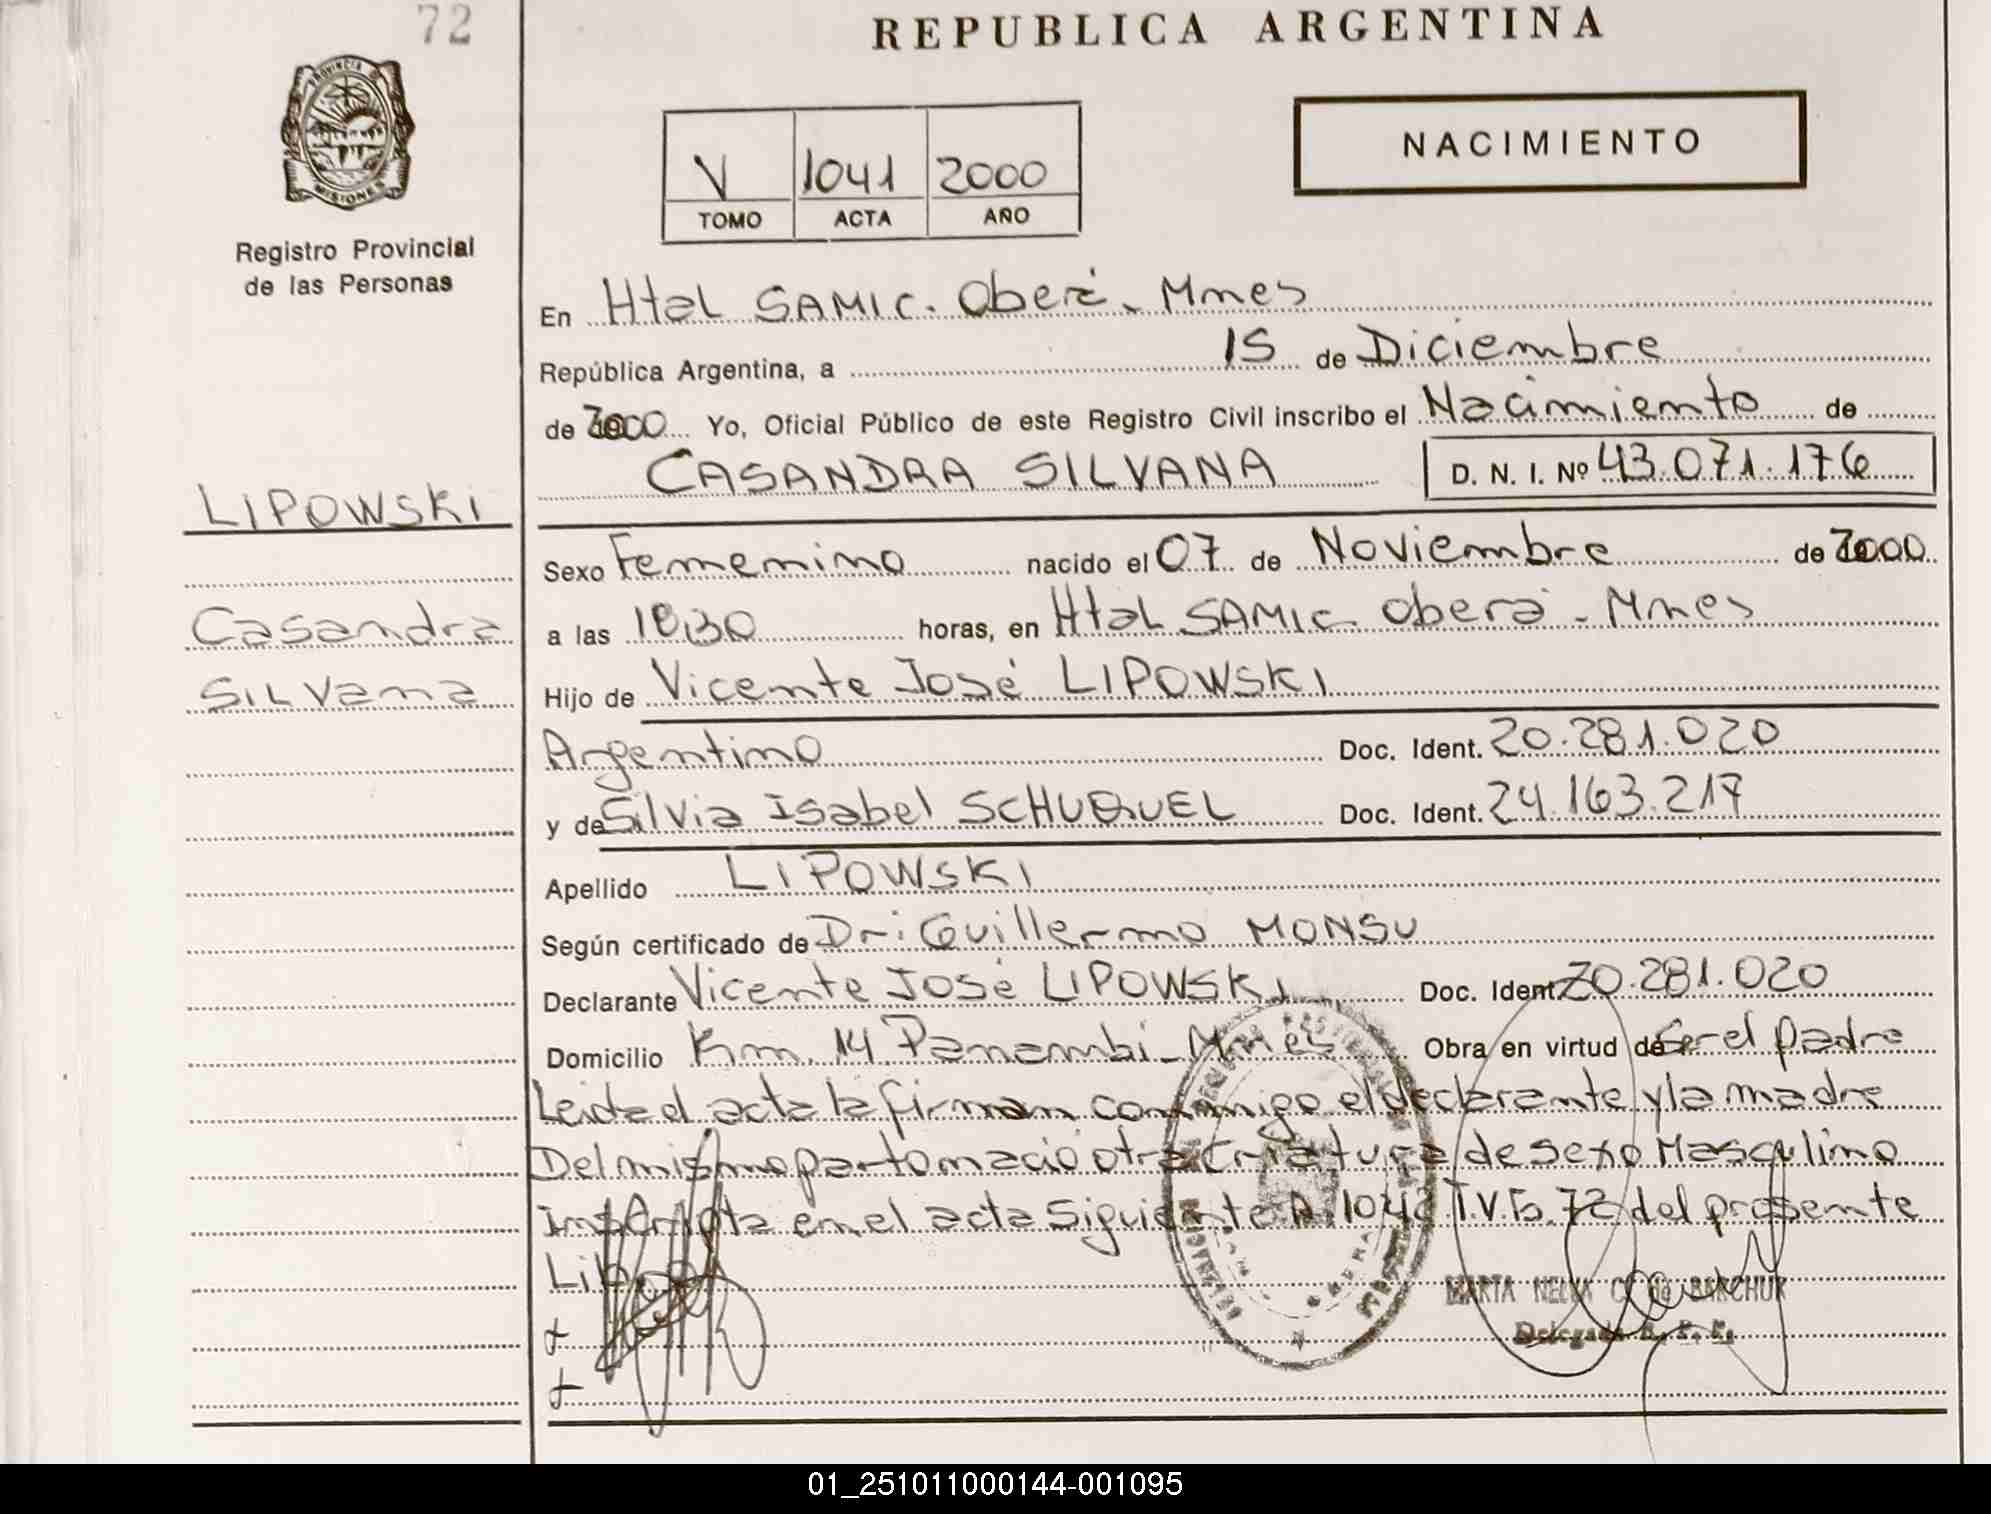 72
REPUBLICA ARGENTINA
PROVINCIA DE
MISIONES
Registro Provincial
de las Personas
V 1041 2000
TOMO ACTA AÑO
NACIMIENTO
En Htal SAMIC. Oberá - Mnes
República Argentina, a 15 de Diciembre
de 2000 Yo, Oficial Público de este Registro Civil inscribo el Nacimiento de
CASANDRA SILVANA D. N. I. Nº 43.071.176
LIPOWSKI
Sexo Femenino nacido el 07 de Noviembre de 2000
Casandra
a las 18:30 horas, en Htal SAMIC Oberá - Mnes
SILVana
Hijo de Vicente José LIPOWSKI
Argentino Doc. Ident. 20.281.020
y de Silvia Isabel Doc. Ident. 24.163.217
Apellido LIPOWSKI
Según certificado de Dr: Guillermo MONSU
Declarante Vicente José LIPOWSKI Doc. Ident. 20.281.020
Domicilio Km. 14 Panambi - Mnes Obra en virtud de Ser el padre
Leida el acta la firman conmigo el declarante y la madre
Del mismo parto nació otra Criatura de sexo Masculino
Inscripta en el acta Siguiente A. 1042 T.V. Fo. 72 del presente
Libro
MARTA NELVA C. de BARCHUK
Delegada R. P. P.
01_251011000144-001095